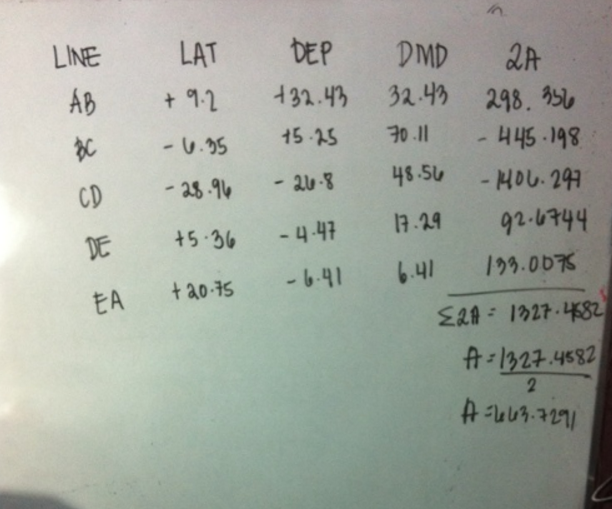 LINE LAT DEP DMD 2A
AB + 9.2 +32.43 32.43 298.356
BC - 6.35 +5.25 70.11 - 445.198
CD - 28.96 - 26.8 48.56 - 1406.297
DE +5.36 - 4.47 17.29 92.6744
EA +20.75 - 6.41 6.41 133.0075
Σ2A = 1327.4582
A = 1327.4582
2
A = 663.7291